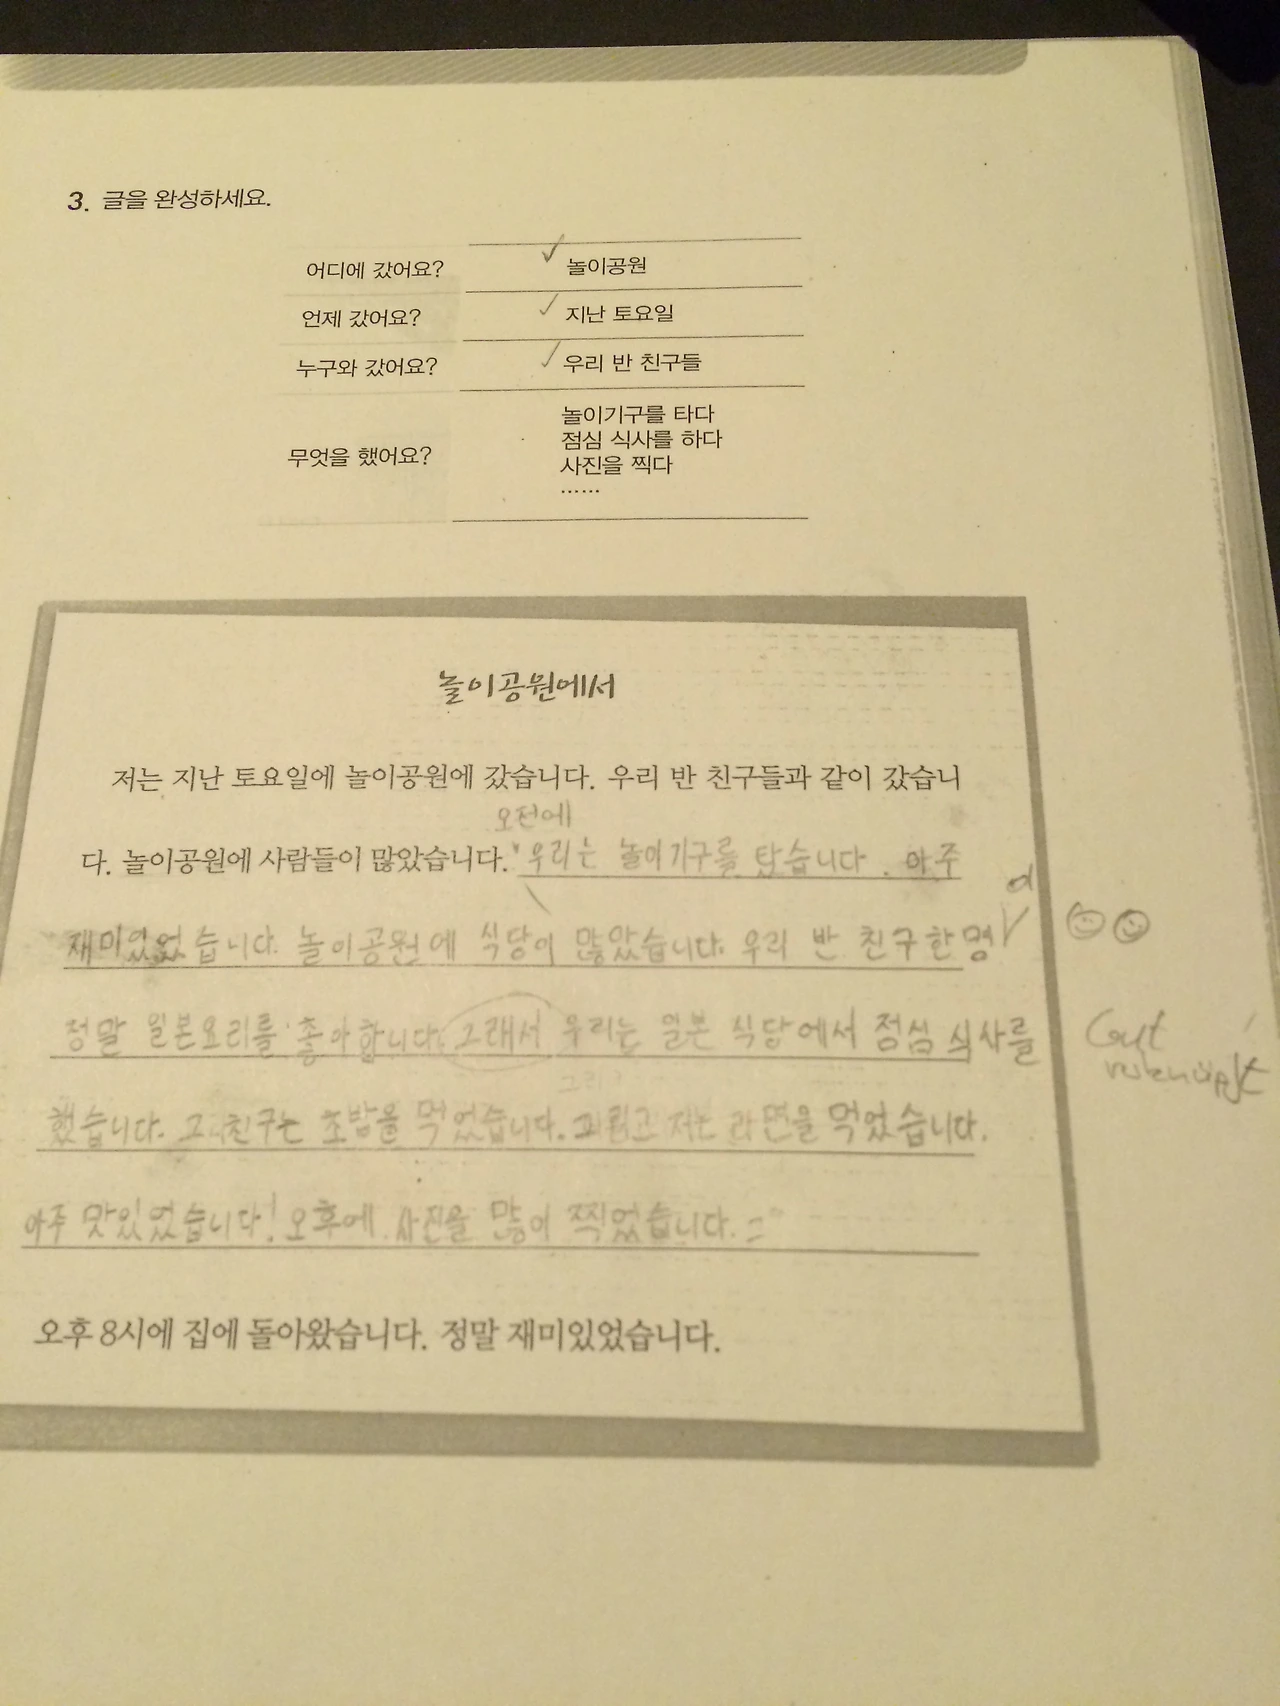 3. 글을 완성하세요.
어디에 갔어요? ✓ 놀이공원
언제 갔어요? ✓ 지난 토요일
누구와 갔어요? ✓ 우리 반 친구들
무엇을 했어요?
놀이기구를 타다
점심 식사를 하다
사진을 찍다
......
놀이공원에서
저는 지난 토요일에 놀이공원에 갔습니다. 우리 반 친구들과 같이 갔습니
오전에
다. 놀이공원에 사람들이 많았습니다. 우리는 놀이기구를 탔습니다. 아주
재미있었습니다. 놀이공원에 식당이 많았습니다. 우리 반 친구 한 명
정말 일본요리를 좋아합니다. 그래서 우리는 일본 식당에서 점심 식사를
했습니다. 그 친구는 초밥을 먹었습니다. 그리고 저는 라면을 먹었습니다.
아주 맛있었습니다! 오후에 사진을 많이 찍었습니다.
오후 8시에 집에 돌아왔습니다. 정말 재미있었습니다.